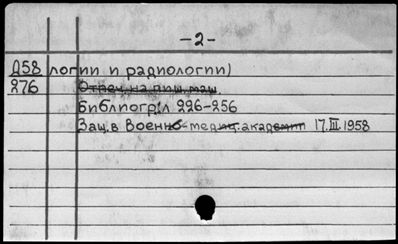 -2-
Д58 логии и радиологии)
276 Отпеч. на пиш. маш.
Библиогр: л 226-256
Защ. в Военно-медиц. академии 17.III.1958